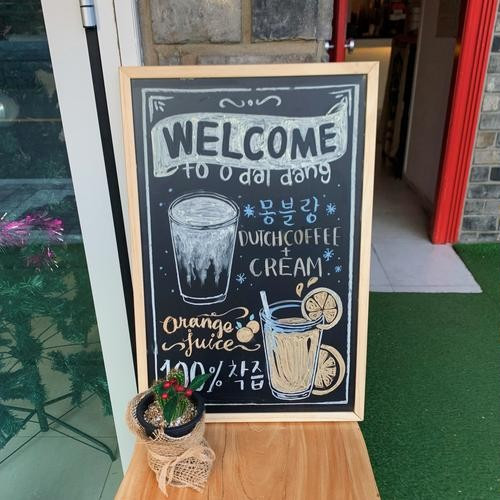 WELCOME
to o dal dang
*몽블랑*
DUTCHCOFFEE
+
CREAM
Orange
juice
100% 착즙